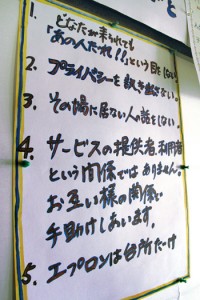 1. どなたが来られても
「あの人だれ!!」という目をしない。
2. プライバシーを執き出さない。
3. その場に居ない人の話をしない。
4. サービスの提供者、利用者
という関係ではありません。
お互い様の関係で
手助けしあいます。
5. エプロンは台所だけ